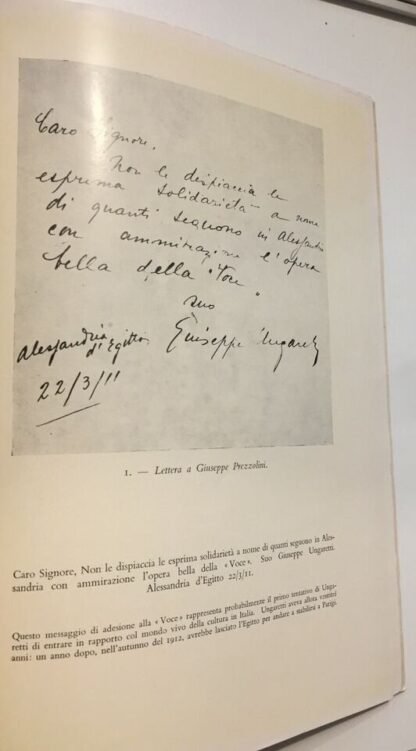 Caro Signore,
Non le dispiaccia le
esprima solidarietà a nome
di quanti seguono in Alessandria
con ammirazione l'opera
bella della "Voce"
suo
Giuseppe Ungaretti
Alessandria
d'Egitto
22/3/11
1. — Lettera a Giuseppe Prezzolini.
Caro Signore, Non le dispiaccia le esprima solidarietà a nome di quanti seguono in Ales-
sandria con ammirazione l'opera bella della « Voce ». Suo Giuseppe Ungaretti.
Alessandria d'Egitto 22/3/11.
Questo messaggio di adesione alla « Voce » rappresenta probabilmente il primo tentativo di Unga-
retti di entrare in rapporto col mondo vivo della cultura in Italia. Ungaretti aveva allora ventitré
anni: un anno dopo, nell'autunno del 1912, avrebbe lasciato l'Egitto per andare a stabilirsi a Parigi.